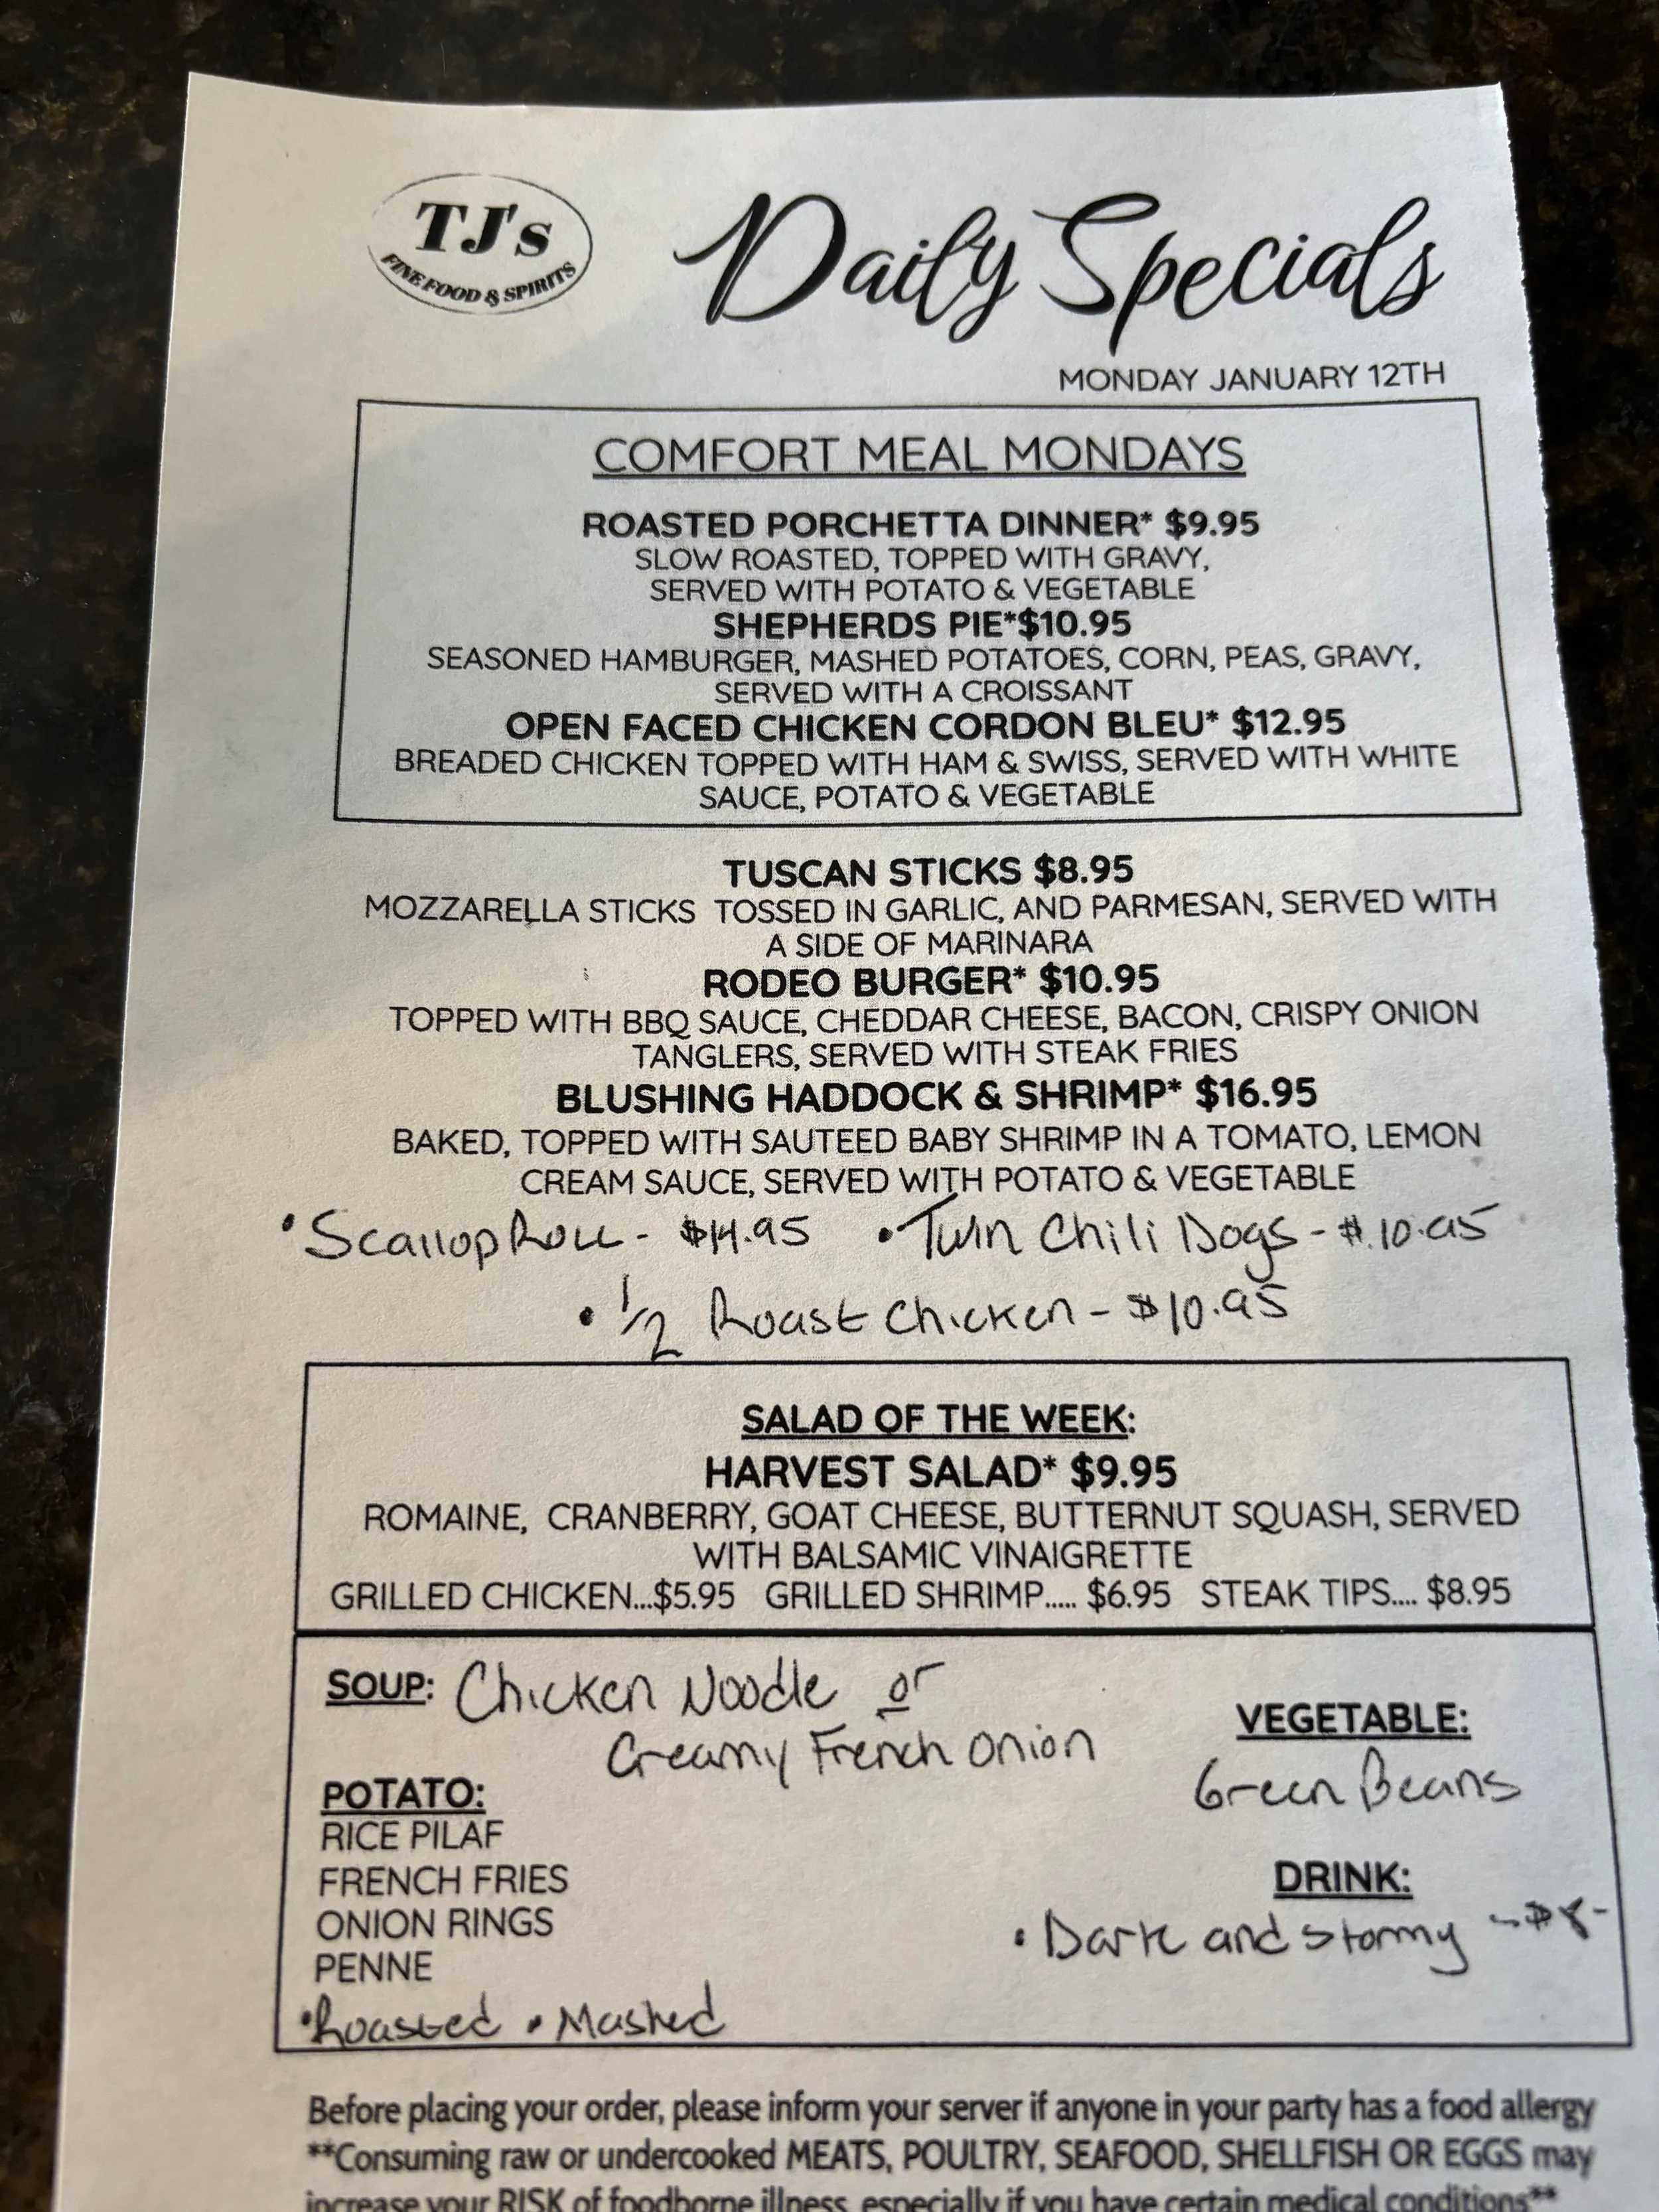 TJ's
FINE FOOD & SPIRITS
Daily Specials
MONDAY JANUARY 12TH
COMFORT MEAL MONDAYS
ROASTED PORCHETTA DINNER* $9.95
SLOW ROASTED, TOPPED WITH GRAVY,
SERVED WITH POTATO & VEGETABLE
SHEPHERDS PIE*$10.95
SEASONED HAMBURGER, MASHED POTATOES, CORN, PEAS, GRAVY,
SERVED WITH A CROISSANT
OPEN FACED CHICKEN CORDON BLEU* $12.95
BREADED CHICKEN TOPPED WITH HAM & SWISS, SERVED WITH WHITE
SAUCE, POTATO & VEGETABLE
TUSCAN STICKS $8.95
MOZZARELLA STICKS TOSSED IN GARLIC, AND PARMESAN, SERVED WITH
A SIDE OF MARINARA
RODEO BURGER* $10.95
TOPPED WITH BBQ SAUCE, CHEDDAR CHEESE, BACON, CRISPY ONION
TANGLERS, SERVED WITH STEAK FRIES
BLUSHING HADDOCK & SHRIMP* $16.95
BAKED, TOPPED WITH SAUTEED BABY SHRIMP IN A TOMATO, LEMON
CREAM SAUCE, SERVED WITH POTATO & VEGETABLE
• Scallop Roll - $14.95 • Twin Chili Dogs - $10.95
• 1/2 Roast Chicken - $10.95
SALAD OF THE WEEK:
HARVEST SALAD* $9.95
ROMAINE, CRANBERRY, GOAT CHEESE, BUTTERNUT SQUASH, SERVED
WITH BALSAMIC VINAIGRETTE
GRILLED CHICKEN...$5.95 GRILLED SHRIMP..... $6.95 STEAK TIPS.... $8.95
SOUP: Chicken Noodle or
Creamy French Onion
VEGETABLE:
Green Beans
POTATO:
RICE PILAF
FRENCH FRIES
ONION RINGS
PENNE
• Roasted • Mashed
DRINK:
• Dark and Stormy - $8-
Before placing your order, please inform your server if anyone in your party has a food allergy
**Consuming raw or undercooked MEATS, POULTRY, SEAFOOD, SHELLFISH OR EGGS may
increase your RISK of foodborne illness, especially if you have certain medical conditions**